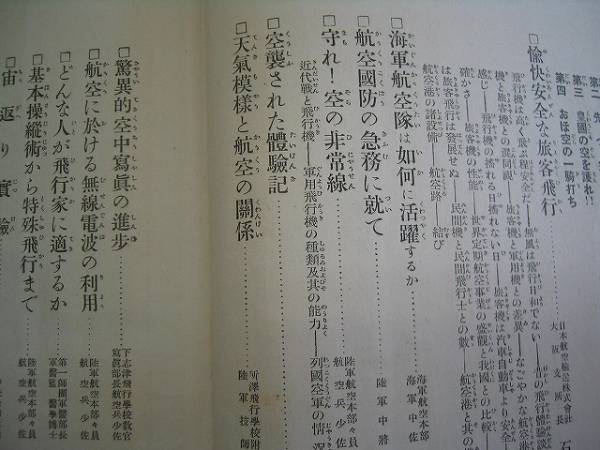 第二 先
第三 皇國の空を護れ!!
第四 おほ空の一騎打ち
□愉快安全な旅客飛行
日本航空輸送株式會社
大阪支所長
飛行機は高く飛ぶ程安全だ――無風は飛行日和でない――昔の飛行體驗談
機と旅客機との混同誤――旅客機と軍用機との差異――なごやかな航空港
感じ――飛行機の搖れる日搖れない日――旅客機は汽車自動車より安全
確かさ――旅客機の性能――世界定期航空事業の盛觀と我國との比較――
は旅客飛行は發展せぬ――民間機と民間飛行士との數――航空港と其の
航空港の諸設備――航空路――結び
□海軍航空隊は如何に活躍するか
海軍航空本部々員
海軍中佐
□航空國防の急務に就て
陸軍中將
□守れ!空の非常線
陸軍航空本部々員
航空兵少佐
近代戰と飛行機――軍用飛行機の種類及其の能力――列國空軍の情況
□空襲された體驗記
□天氣模樣と航空の關係
所澤飛行學校附
陸軍技師
□驚異的空中寫眞の進步
下志津飛行學校敎官
寫眞部長航空兵少佐
□航空に於ける無線電波の利用
陸軍航空本部々員
航空兵少佐
□どんな人が飛行家に適するか
第一師團軍醫部長
軍醫監 醫學博士
□基本操縱術から特殊飛行まで
陸軍航空本部々員
航空兵少佐
□宙返り實驗